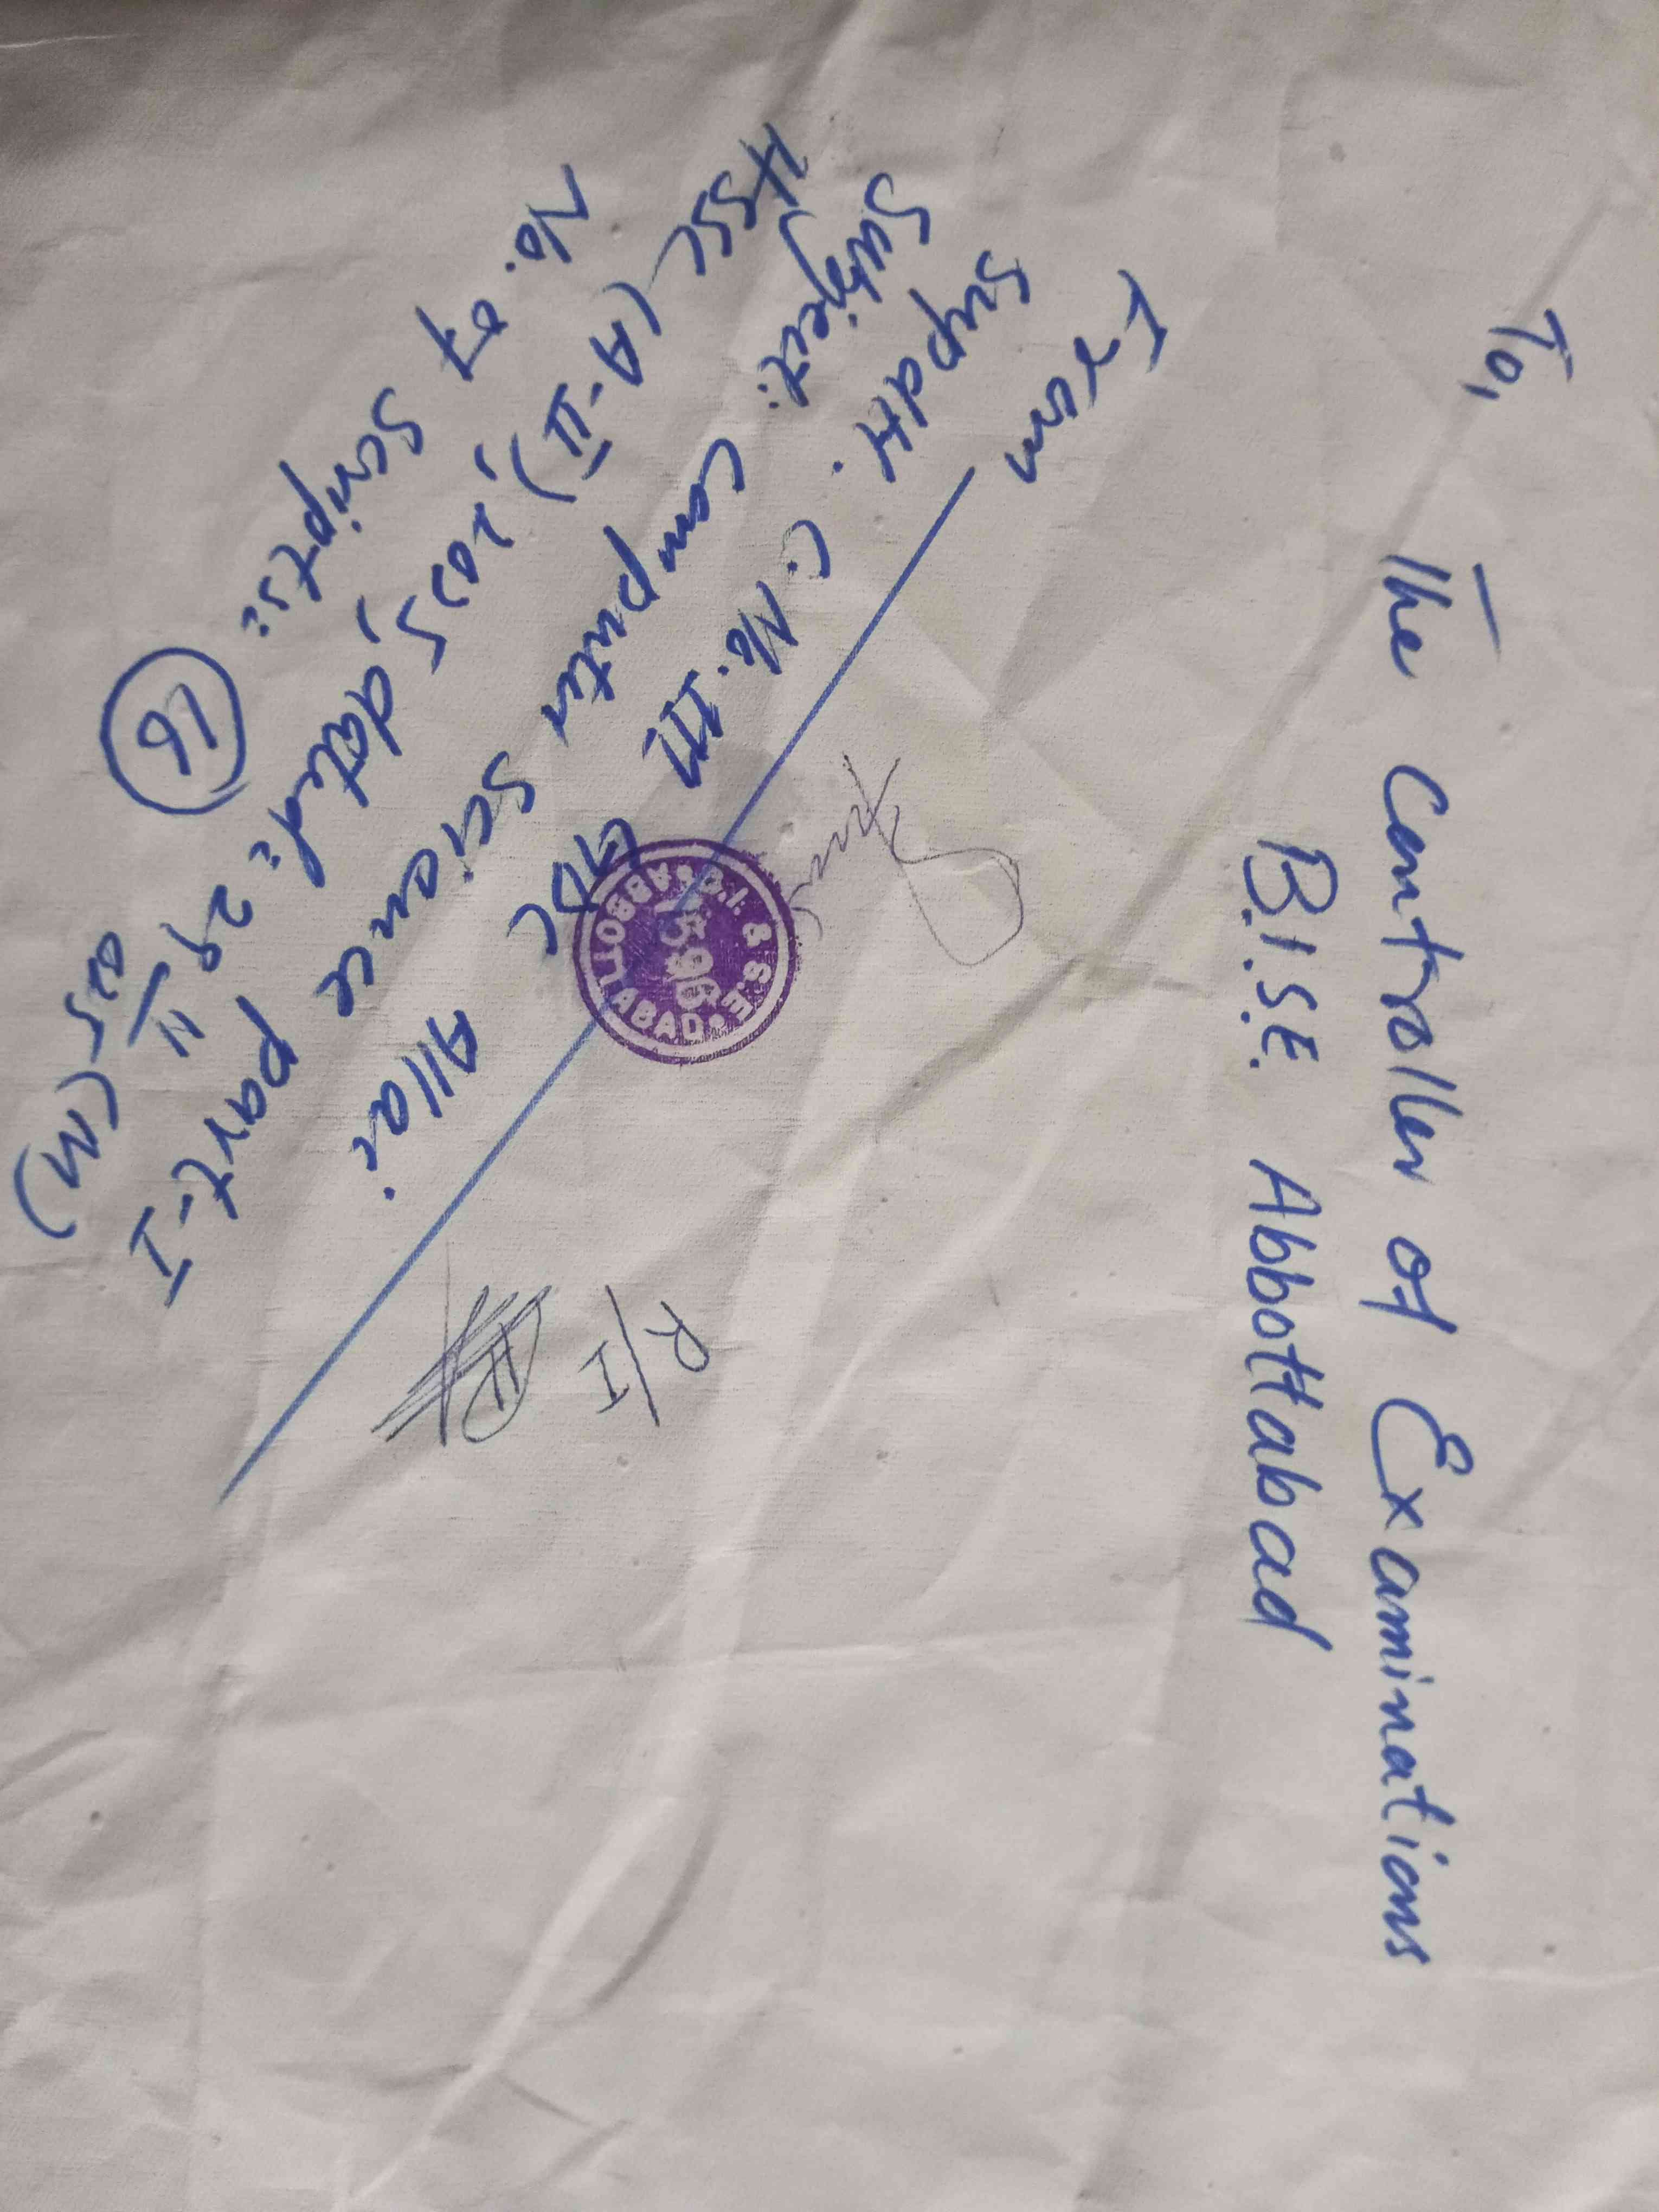 To,
The Controller of Examinations
B.I.S.E. Abbottabad
From
Supdtt. C. No. III GDC Allai.
Subject: Computer Science Part-I
HSSC (A-II), 2025, dated: 29-11-025 (M)
No. of Scripts: 16
B.I. & S.E. ABBOTTABAD
R/I
II